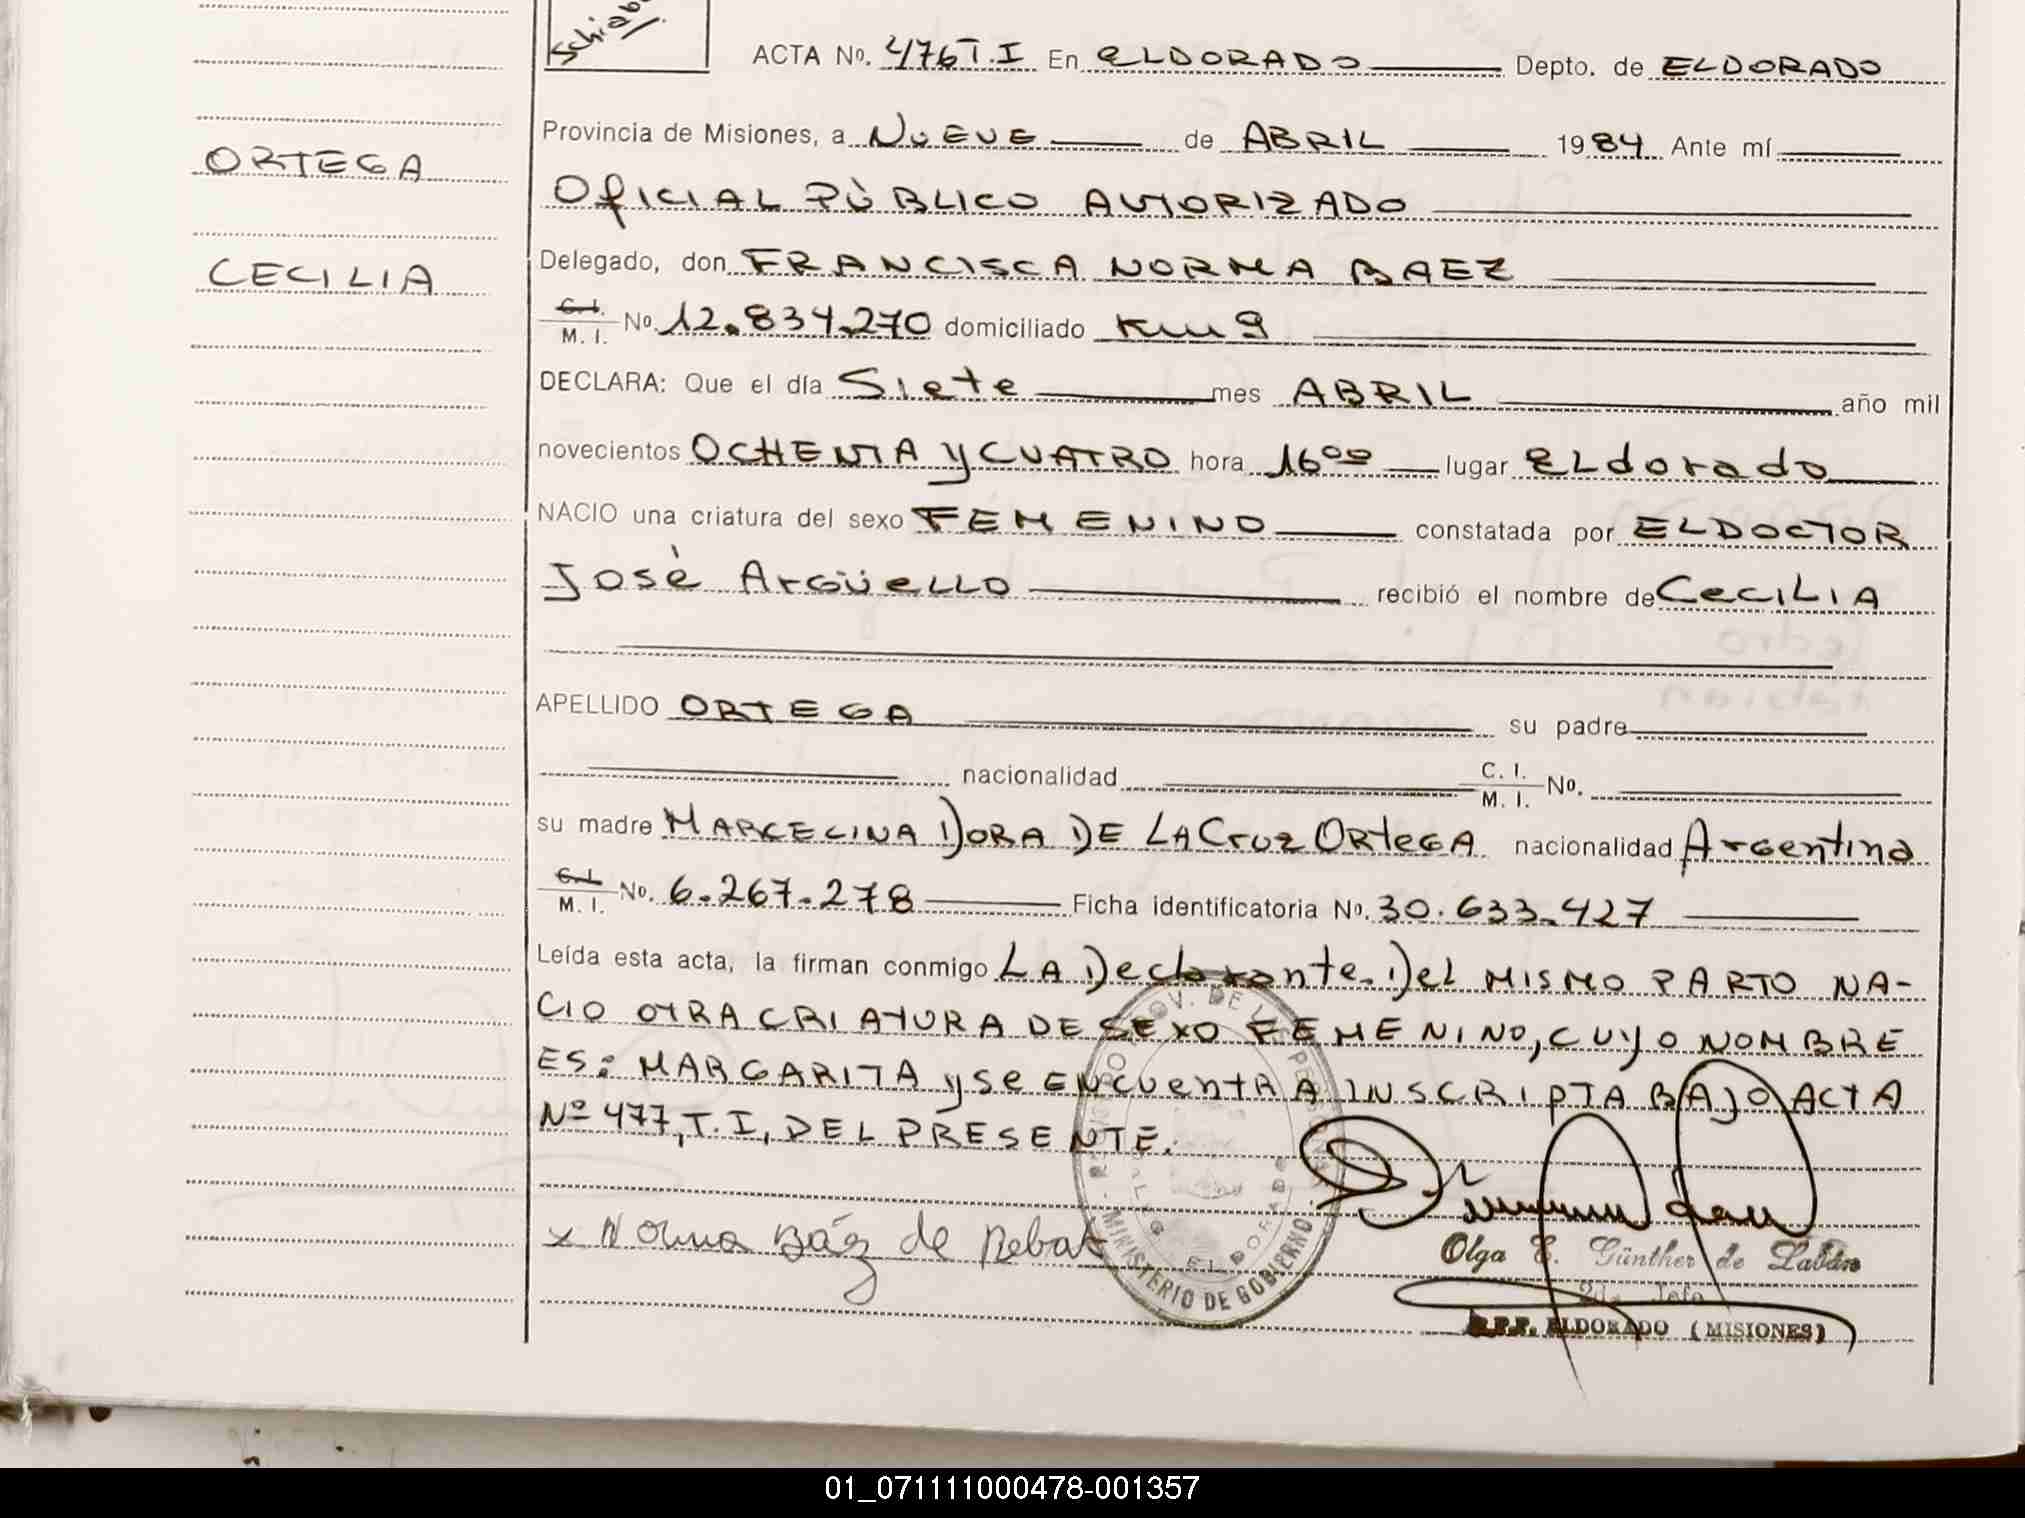 Schiabo
ACTA Nº. 476 T.I En ELDORADO Depto. de ELDORADO
Provincia de Misiones, a NUEVE de ABRIL 1984 Ante mí
ORTEGA
OfICIAL PÙBLICO AUTORIZADO
Delegado, don FRANCISCA NORMA BAEZ
CECILIA
C.I.
M. I. Nº. 12.834.270 domiciliado Km 9
DECLARA: Que el día Siete mes ABRIL año mil
novecientos OCHENTA y CUATRO hora 16⁰⁰ lugar ELdorado
NACIO una criatura del sexo FEMENINO constatada por EL DOCTOR
José ArGüeLLO recibió el nombre de CeCILIA
APELLIDO ORTEGA su padre
nacionalidad C. I.
M. I. Nº.
su madre MARCELINA DORA DE LA Cruz ORteGA nacionalidad Argentina
C.I.
M. I. Nº. 6.267.278 Ficha identificatoria Nº. 30.633.427
Leída esta acta, la firman conmigo LA Declarante. Del MISMO PARTO NA-
CIO OTRA CRIATURA DE SEXO FEMENINO, CUYO NOMBRE
ES: MARGARITA y se ENCUENTRA INSCRIPTA BAJO ACTA
Nº 477, T.I, DEL PRESENTE.
x Norma Báez de
MINISTERIO DE GOBIERNO
ELDORADO
Olga E. Günther de Labán
2da Jefa
R.P.P. ELDORADO (MISIONES)
01_071111000478-001357